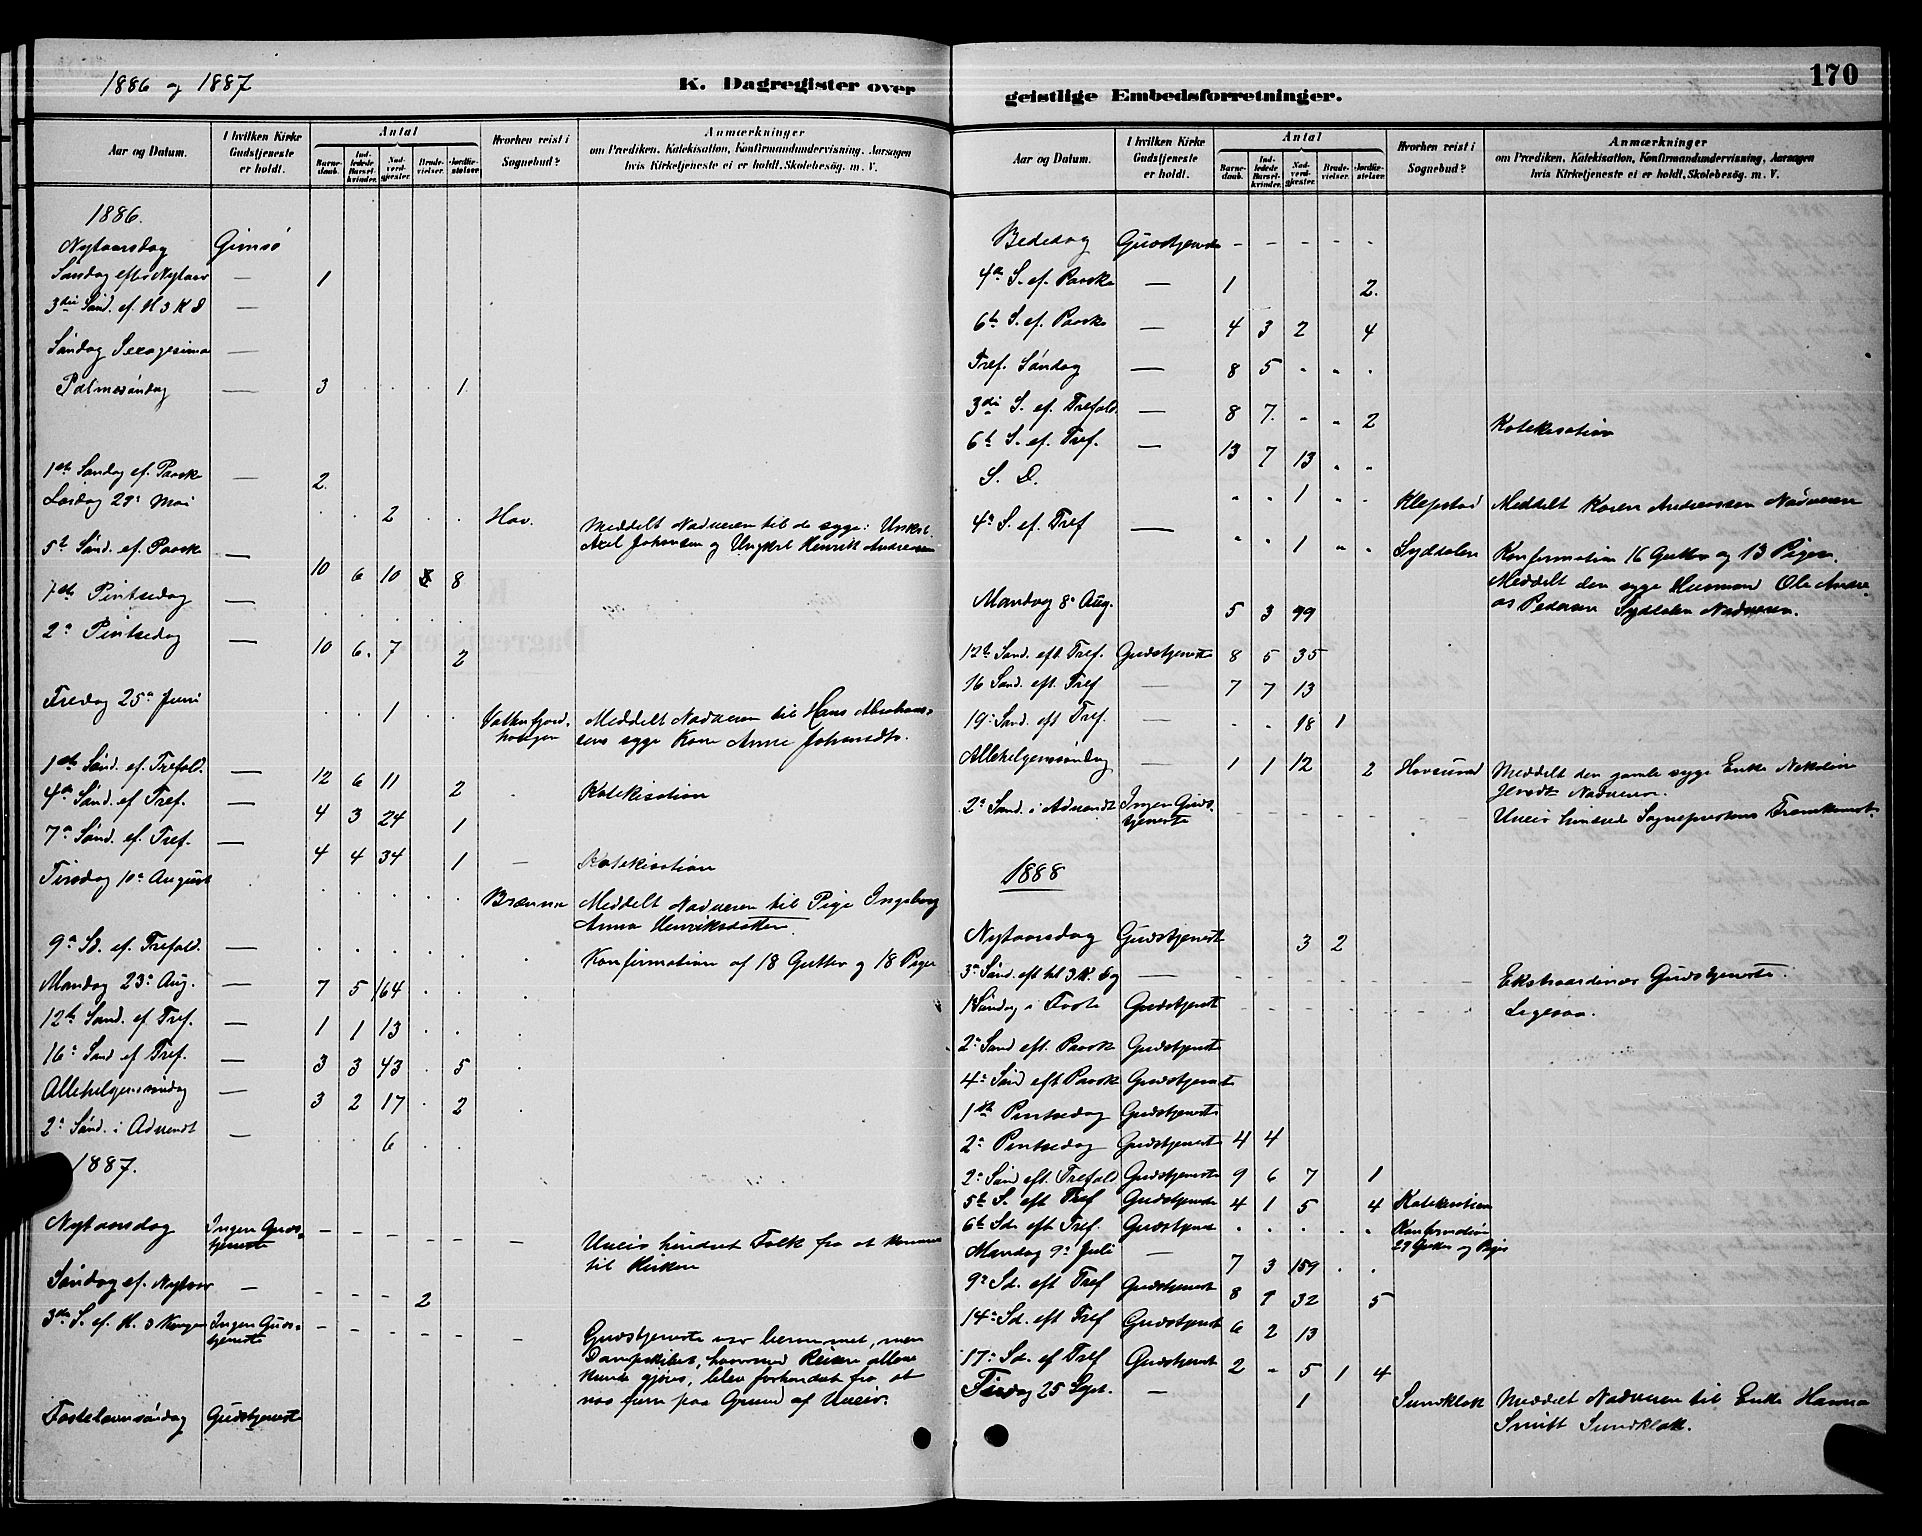 1886 og 1887
K. Dagregister over
Aar og Datum. | I hvilken Kirke Gudstjeneste er holdt. | Antal | Barnedaab. | Indledede Barselkvinder. | Nadverdgjester. | Brudevielser. | Jordfæstelser. | Hvorhen reist i Sognebud? | Anmærkninger om Prædiken, Katekisation, Konfirmandundervisning, Aarsagen hvis Kirketjeneste ei er holdt, Skolebesøg. m. V.
1886.
Nytaarsdag Gimsø
Søndag efter Nytaar — 1
3die Sønd. ef. H 3 K D —
Søndag Sexagesima —
Palmesøndag — 3 . . . . 1
1ste Søndag ef. Paaske — 2.
Lørdag 29de Mai . . 2 . . Hov. Meddelt Nadveren til de syge: Unkrl.
Axel Johansen og Ungkrl Henrik Andreassen
5te Sønd. ef. Paaske — 10 6 10 8
1ste Pintsedag — . . . . .
2den Pintsedag — 10 6. 7 2
Fredag 25de Juni . . 1 . . Vatterfjord- Meddelt Nadveren til Hans Abrahams-
haugen sens syge Kone Anne Johansdtr.
1ste Sønd. ef. Trefold. — 12 6 11 2 . Katekisation
4de Sønd. ef Tref. — 4 3 24 1
7de Sønd. ef Tref. — 4 4 34 1 — Katekisation
Tirsdag 10de August . . . . . Brenna Meddelt Nadveren til Pige Ingeborg
Anna Henriksdatter.
9de Sd. ef. Trefold. — . . . . . Konfirmation af 18 Gutter og 18 Piger
Mandag 23de Aug. — 7 5 164 . .
12te Sønd. ef Tref. — 1 1 13 . .
16de Sønd ef Tref. — 3 3 43 . 5 .
Allehelgenssøndag — 3 2 17 . 2 .
2den Sønd. i Advendt — . . 6 . .
1887.
Nytaarsdag Ingen Guds- – – – – – – Uveir hindret Folk fra at komme
tjeneste til Kirken
Søndag ef. Nytaar — – – – 2
3die S. ef. H. 3 Konger Ingen Guds- – – – – – – Gudstjeneste var berammet, men
tjeneste Dampskibet, hvormed Reisen alene
kunde gjøres, blev forhindret fra at
naa frem paa Grund af Uveir.
Fastelavnssøndag Gudstjeneste
170
geistlige Embedsforretninger.
Aar og Datum. | I hvilken Kirke Gudstjeneste er holdt. | Antal | Barnedaab. | Indledede Barselkvinder. | Nadverdgjester. | Brudevielser. | Jordfæstelser. | Hvorhen reist i Sognebud? | Anmærkninger om Prædiken, Katekisation, Konfirmandundervisning, Aarsagen hvis Kirketjeneste ei er holdt, Skolebesøg. m. V.
Bededag Gudstjeneste – – – – –
4de S. ef. Paaske — 1 2.
6te S. ef. Paaske — 4 3 2 4
Tref. Søndag — 8 5 . . .
3die S. ef. Trefold. — 8 7. . . 2 Katekisation
6te S. ef. Tref. — 13 7 13 . .
S. D. . . 1 . . Klepstad Meddelt Karen Andreassen Nadveren
S. ef. Tref — . . 1 . . Sydtalen Konfirmation 16 Gutter og 13 Piger.
Meddelt den syge Husmand Ole Andre-
as Pedersen Sydtalen Nadveren.
Mandag 8de Aug. 5 3 99
12te Sønd. eft. Tref. Gudstjeneste 8 5 35
16 Sønd. eft. Tref — 7 7 13
19de Sønd. eft Tref. — . . 18 1
Allehelgenssøndag — 1 1 12 2 Hovsund Meddelt den gamle syge Enke Nikoline
Jensdtr Nadveren.
2den Sønd. i Advendt Ingen Guds- – – – – – – Uveir hindrede Sognepræstens Fremkomst.
tjeneste
1888
Nytaarsdag Gudstjeneste 3 2
3die Sønd. eft hl 3 K. Dag — – – – – – – Ekstraordinær Gudstjeneste.
1 Søndag i Faste Gudstjenest – – – – – – Ligesaa.
2den Sønd eft. Paaske Gudstjenest
4de Sønd eft Paaske Gudstjenest
1ste Pintsedag Gudstjeneste
2den Pintsedag Gudstjeneste 4 4
2den Sønd eft. Trefold Gudstjeneste 9 6 7 1
5te S. eft Tref Gudstjeneste 4 1 5 4 Katekisation
6te Sd. eft Tref. Gudstjenest . . . . . Konfirmation
Mandag 9de Juli — 7 3 159 . . 29 Gutter og Piger
9de Sd. eft Tref Gudstjenest 8 7 32 5
14de Sd. eft Tref Gudstjenest 6 2 13
17de Sd. ef Tref Gudstjenest 2 – 5 1 4
Tirsdag 25 Sept. — 1 Sundklak Meddelt Nadveren til Enke Hanna
Smitt Sundklak.